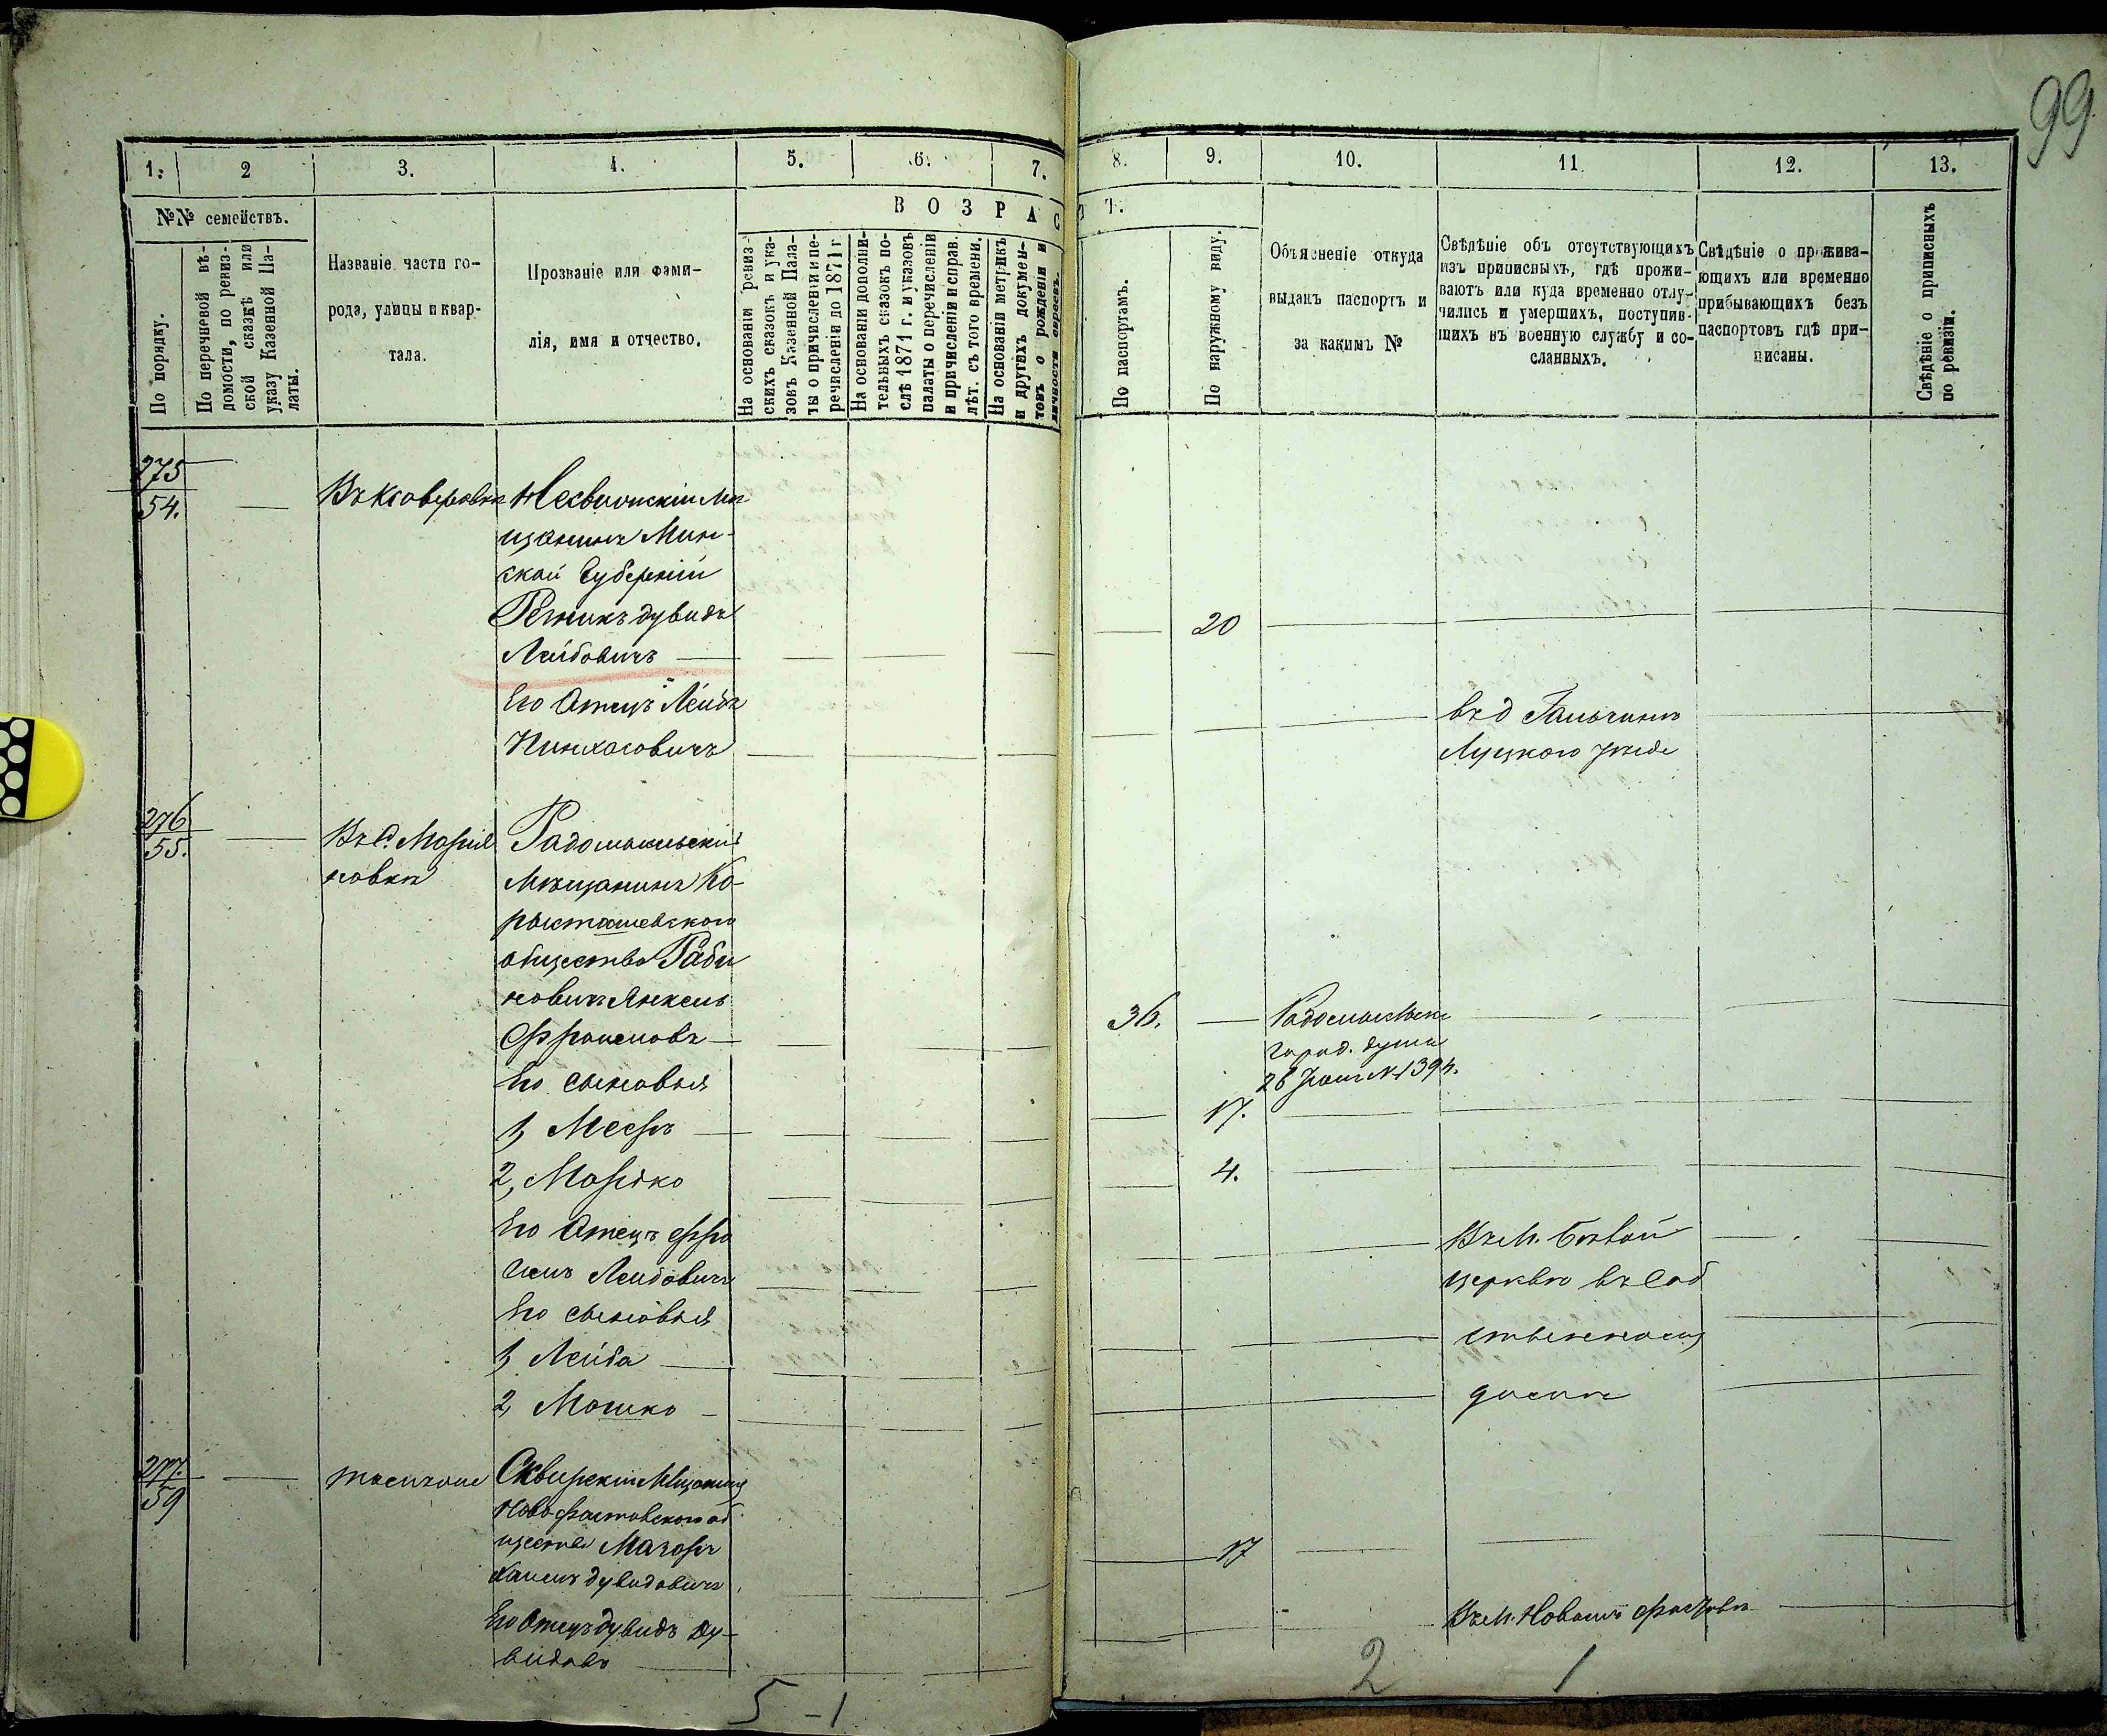 99
1. 2 3. 4. 5. 6. 7.
8. 9. 10. 11. 12. 13.
№№ семействъ.
По порядку.
По перечневой вѣ-
домости, по ревиз-
ской сказкѣ или
указу Казенной Па-
латы.
Названіе части го-
рода, улицы и квар-
тала.
Прозваніе или фами-
лія, имя и отчество.
ВОЗРАС
Т.
На основаніи ревиз-
скихъ сказокъ и ука-
зовъ Казенной Пала-
ты о причисленіи и пе-
речисленіи до 1871 г
На основаніи дополни-
тельныхъ сказокъ по-
слѣ 1871 г. и указовъ
палаты о перечисленіи
и причисленіи и справ.
лѣт. съ того времени.
На основаніи метрикъ
и другихъ докумен-
товъ о рожденіи и
личности евреевъ.
По паспортамъ.
По наружному виду.
Объясненіе откуда
выданъ паспортъ и
за какимъ №
Свѣдѣніе объ отсутствующихъ
изъ приписныхъ, гдѣ прожи-
ваютъ или куда временно отлу-
чились и умершихъ, поступив-
шихъ въ военную службу и со-
сланныхъ.
Свѣдѣніе о прожива-
ющихъ или временно
прибывающихъ безъ
паспортовъ гдѣ при-
писаны.
Свѣдѣніе о приписныхъ
по ревизіи.
275
54.
Въ Ксаверовкѣ
Несвижскій Мѣ-
щанинъ Мин-
ской Губерніи
Резникъ Дувидъ
Лейбовичъ
20
Его Отецъ Лейба
Пинхасовичъ
въ д
Луцкого уѣзда
276
55.
Въ С. Маріа
новкѣ
Радомысльскій
Мѣщанинъ Ко-
ростышевского
общества Раби
новичъ Янкель
Фроимовъ
36.
Радомысльск.
город. дума
26 № 1394.
Его сыновья
1, Мееръ
17.
2, Мордко
4.
Его Отецъ Фро
имъ Лейбовичъ
Въ М. Бѣлой
церквѣ въ соб
ственномъ
домѣ
Его сыновья
1, Лейба
2, Мошко
277.
59
тоже
Сквирскій Мѣщанинъ
Новофастовского об
щества
Хаимъ Дувидовичъ
17
Его Отецъ Дувидъ Ду-
видовъ
Въ М. Новомъ Фастовѣ
5 - 1
2 1